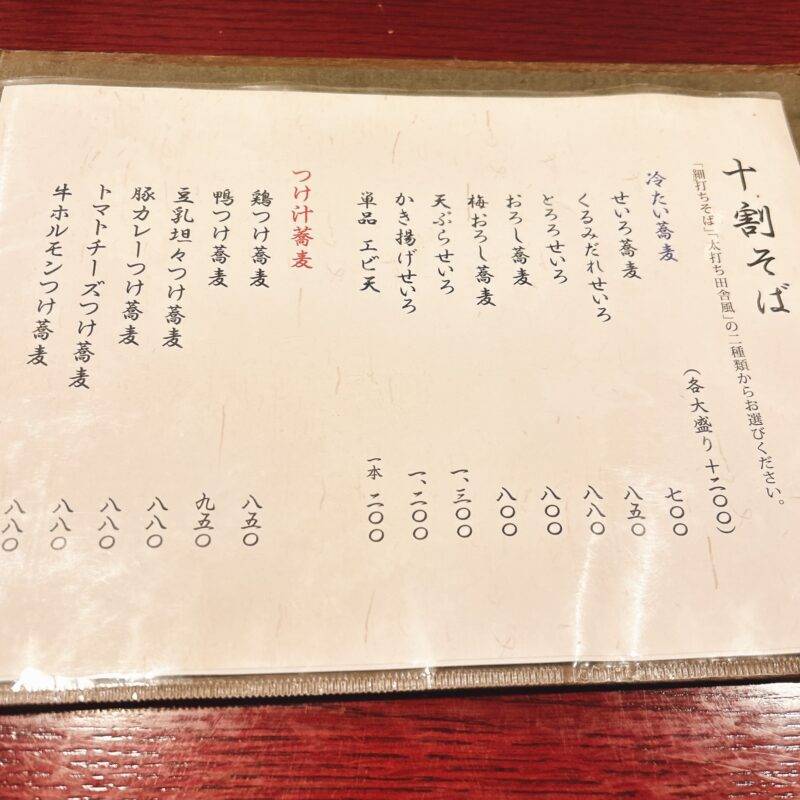 十割そば
「細打ちそば」「太打ち田舎風」の二種類からお選びください。
(各大盛り 十二〇〇)
冷たい蕎麦
せいろ蕎麦 七〇〇
くるみだれせいろ 八五〇
とろろせいろ 八八〇
おろし蕎麦 八〇〇
梅おろし蕎麦 八〇〇
天ぷらせいろ 一、三〇〇
かき揚げせいろ 一、二〇〇
単品 エビ天 一本 二〇〇
つけ汁蕎麦
鶏つけ蕎麦 八五〇
鴨つけ蕎麦 九五〇
豆乳坦々つけ蕎麦 八八〇
豚カレーつけ蕎麦 八八〇
トマトチーズつけ蕎麦 八八〇
牛ホルモンつけ蕎麦 八八〇